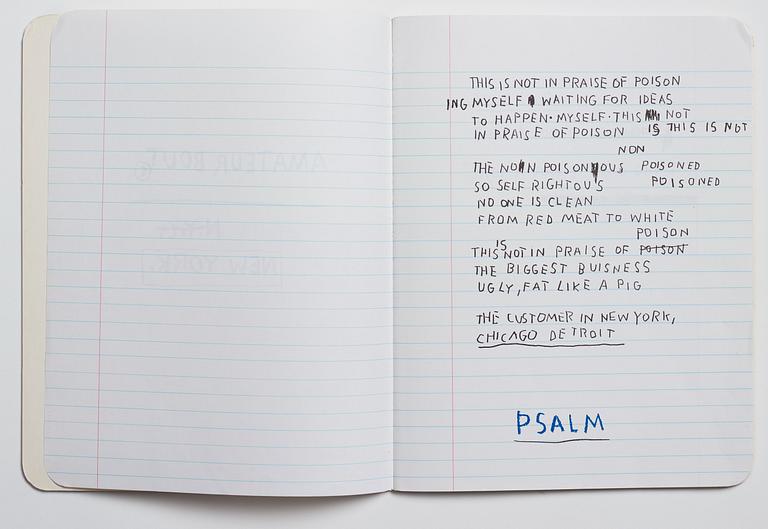 THIS IS NOT IN PRAISE OF POISON
ING MYSELF WAITING FOR IDEAS
TO HAPPEN · MYSELF · THIS NOT
IN PRAISE OF POISON IS THIS IS NOT
NON
THE NON POISONOUS POISONED
SO SELF RIGHTOUS POISONED
NO ONE IS CLEAN
FROM RED MEAT TO WHITE
POISON
THIS IS NOT IN PRAISE OF POISON
THE BIGGEST BUISNESS
UGLY, FAT LIKE A PIG
THE CUSTOMER IN NEW YORK,
CHICAGO DETROIT
PSALM
AMATEUR BOUT
NEW YORK